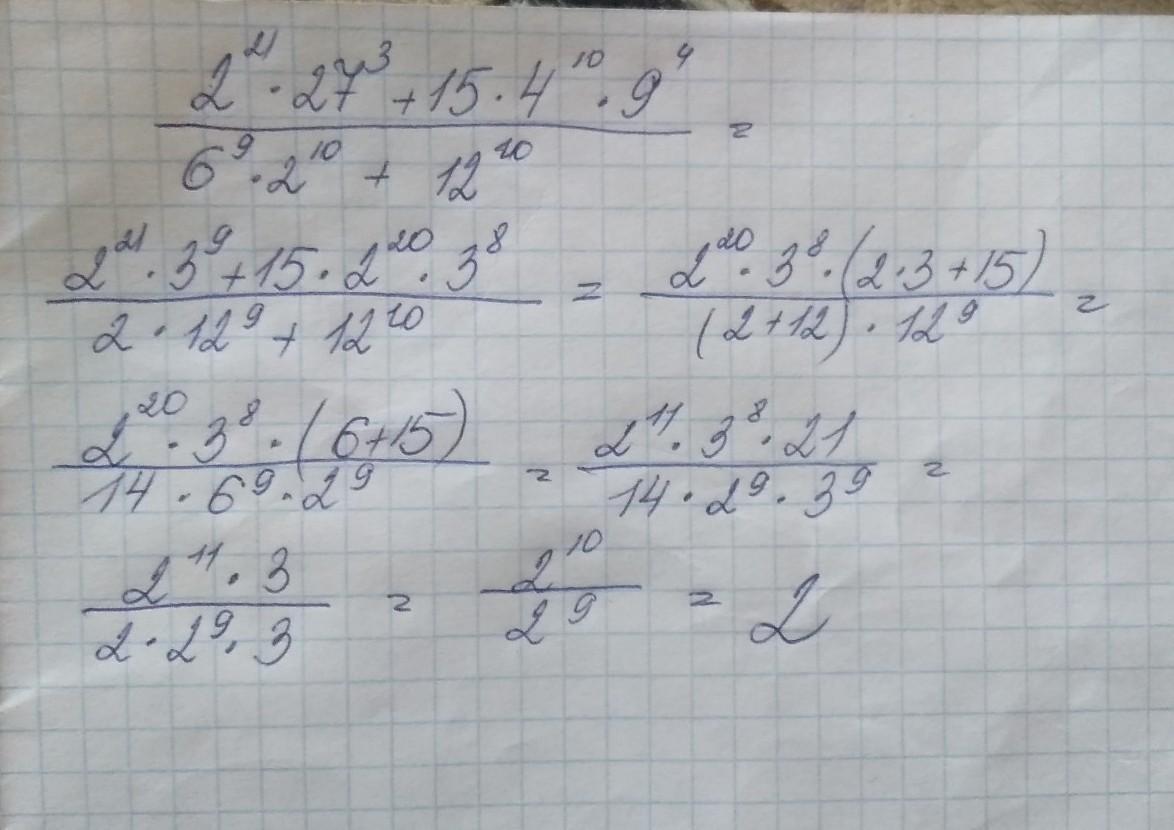 2²¹ · 27³ + 15 · 4¹⁰ · 9⁴
6⁹ · 2¹⁰ + 12¹⁰ =
2²¹ · 3⁹ + 15 · 2²⁰ · 3⁸
2 · 12⁹ + 12¹⁰ =
2²⁰ · 3⁸ · (2 · 3 + 15)
(2 + 12) · 12⁹ =
2²⁰ · 3⁸ · (6 + 15)
14 · 6⁹ · 2⁹ =
2¹¹ · 3⁸ · 21
14 · 2⁹ · 3⁹ =
2¹¹ · 3
2 · 2⁹ · 3 =
2¹⁰
2⁹ = 2